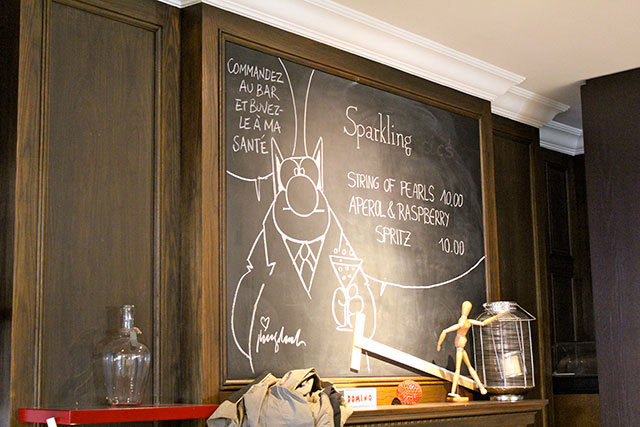 COMMANDEZ
AU BAR
ET BUVEZ-
LE À MA
SANTÉ
Sparkling
STRING OF PEARLS 10.00
APEROL & RASPBERRY
SPRITZ 10.00
DOMINO